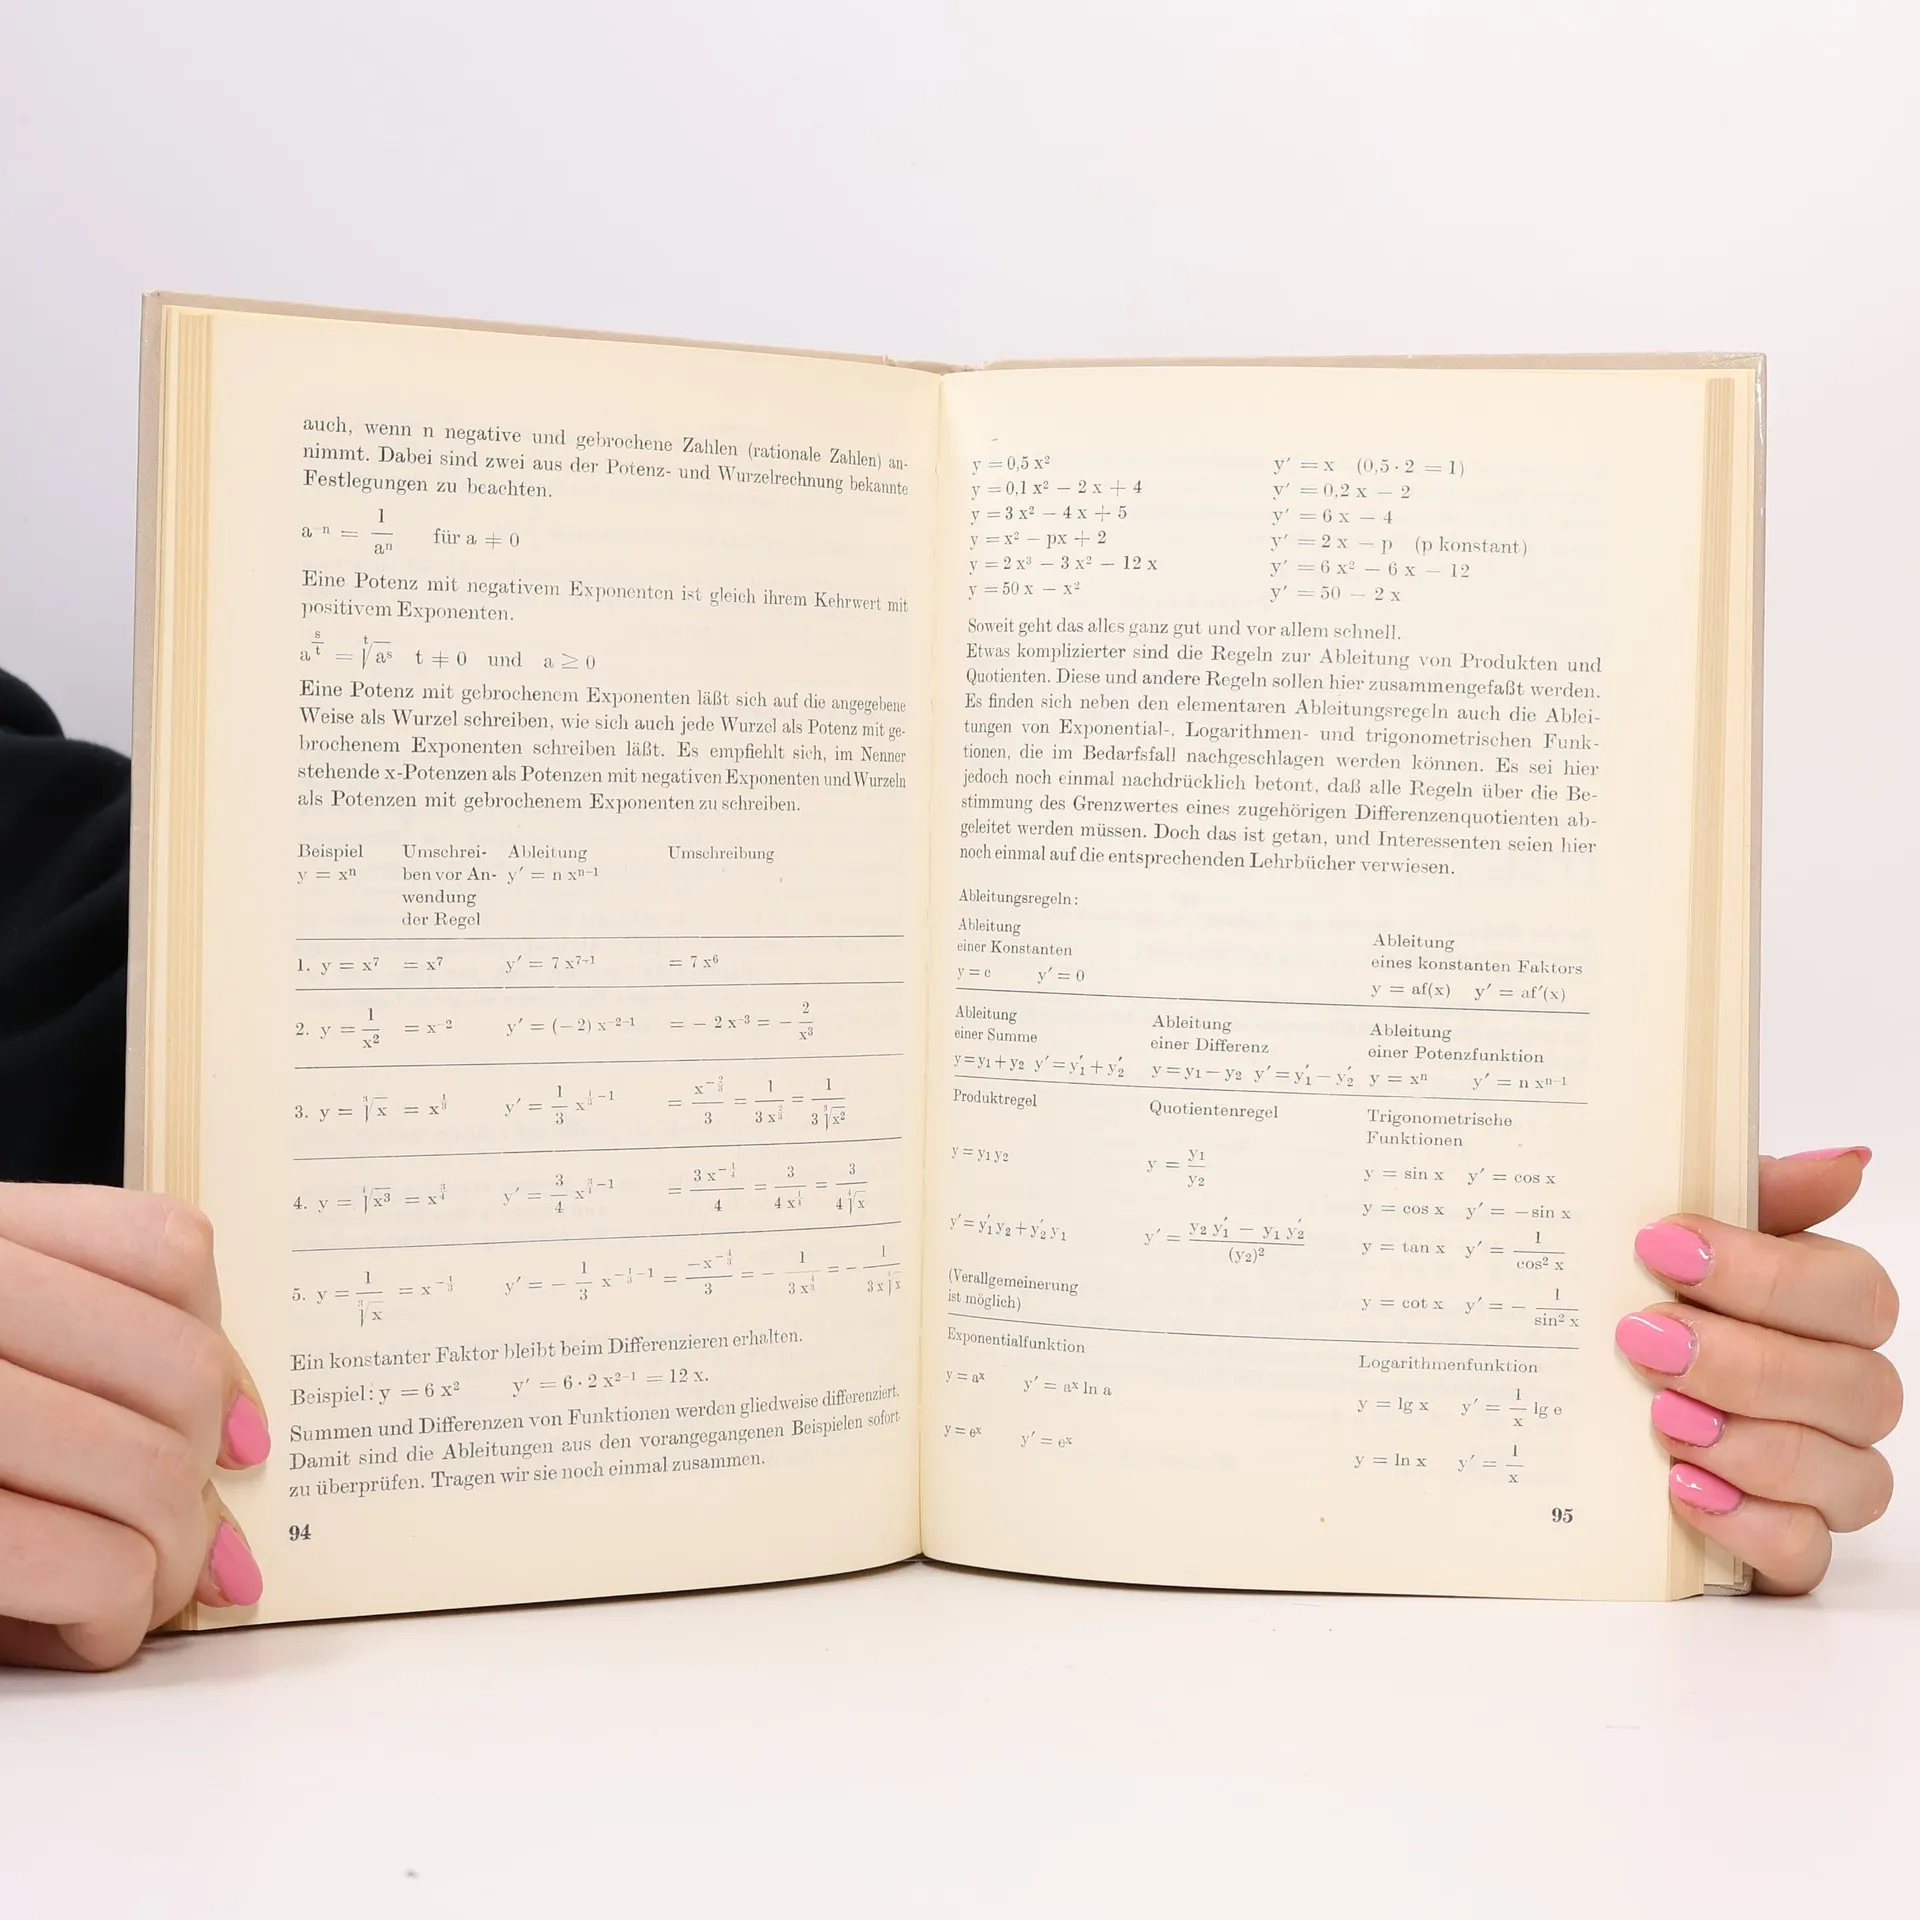 auch, wenn n negative und gebrochene Zahlen (rationale Zahlen) an-
nimmt. Dabei sind zwei aus der Potenz- und Wurzelrechnung bekannte
Festlegungen zu beachten.
a⁻ⁿ = 1/aⁿ für a ≠ 0
Eine Potenz mit negativem Exponenten ist gleich ihrem Kehrwert mit
positivem Exponenten.
a^(s/t) = ᵗ√aˢ t ≠ 0 und a ≥ 0
Eine Potenz mit gebrochenem Exponenten läßt sich auf die angegebene
Weise als Wurzel schreiben, wie sich auch jede Wurzel als Potenz mit ge-
brochenem Exponenten schreiben läßt. Es empfiehlt sich, im Nenner
stehende x-Potenzen als Potenzen mit negativen Exponenten und Wurzeln
als Potenzen mit gebrochenem Exponenten zu schreiben.
Beispiel Umschrei- Ableitung Umschreibung
y = xⁿ ben vor An- y′ = n xⁿ⁻¹
wendung
der Regel
1. y = x⁷ = x⁷ y′ = 7 x⁷⁻¹ = 7 x⁶
2. y = 1/x² = x⁻² y′ = (−2) x⁻²⁻¹ = − 2 x⁻³ = − 2/x³
3. y = ³√x = x^(1/3) y′ = 1/3 x^(1/3 − 1) = x^(−2/3)/3 = 1/(3 x^(2/3)) = 1/(3 ³√x²)
4. y = ⁴√x³ = x^(3/4) y′ = 3/4 x^(3/4 − 1) = 3 x^(−1/4)/4 = 3/(4 x^(1/4)) = 3/(4 ⁴√x)
5. y = 1/³√x = x^(−1/3) y′ = − 1/3 x^(−1/3 − 1) = −x^(−4/3)/3 = − 1/(3 x^(4/3)) = − 1/(3 x ³√x)
Ein konstanter Faktor bleibt beim Differenzieren erhalten.
Beispiel: y = 6 x² y′ = 6 · 2 x²⁻¹ = 12 x.
Summen und Differenzen von Funktionen werden gliedweise differenziert.
Damit sind die Ableitungen aus den vorangegangenen Beispielen sofort
zu überprüfen. Tragen wir sie noch einmal zusammen.
94
y = 0,5 x² y′ = x (0,5 · 2 = 1)
y = 0,1 x² − 2 x + 4 y′ = 0,2 x − 2
y = 3 x² − 4 x + 5 y′ = 6 x − 4
y = x² − px + 2 y′ = 2 x − p (p konstant)
y = 2 x³ − 3 x² − 12 x y′ = 6 x² − 6 x − 12
y = 50 x − x² y′ = 50 − 2 x
Soweit geht das alles ganz gut und vor allem schnell.
Etwas komplizierter sind die Regeln zur Ableitung von Produkten und
Quotienten. Diese und andere Regeln sollen hier zusammengefaßt werden.
Es finden sich neben den elementaren Ableitungsregeln auch die Ablei-
tungen von Exponential-, Logarithmen- und trigonometrischen Funk-
tionen, die im Bedarfsfall nachgeschlagen werden können. Es sei hier
jedoch noch einmal nachdrücklich betont, daß alle Regeln über die Be-
stimmung des Grenzwertes eines zugehörigen Differenzenquotienten ab-
geleitet werden müssen. Doch das ist getan, und Interessenten seien hier
noch einmal auf die entsprechenden Lehrbücher verwiesen.
Ableitungsregeln:
Ableitung Ableitung
einer Konstanten eines konstanten Faktors
y = c y′ = 0 y = af(x) y′ = af′(x)
Ableitung Ableitung Ableitung
einer Summe einer Differenz einer Potenzfunktion
y = y₁ + y₂ y′ = y₁′ + y₂′ y = y₁ − y₂ y′ = y₁′ − y₂′ y = xⁿ y′ = n xⁿ⁻¹
Produktregel Quotientenregel Trigonometrische
Funktionen
y = y₁ y₂ y = y₁/y₂ y = sin x y′ = cos x
y = cos x y′ = −sin x
y′ = y₁′ y₂ + y₂′ y₁ y′ = (y₂ y₁′ − y₁ y₂′)/(y₂)² y = tan x y′ = 1/cos² x
(Verallgemeinerung
ist möglich) y = cot x y′ = − 1/sin² x
Exponentialfunktion Logarithmenfunktion
y = aˣ y′ = aˣ ln a y = lg x y′ = 1/x lg e
y = eˣ y′ = eˣ y = ln x y′ = 1/x
95